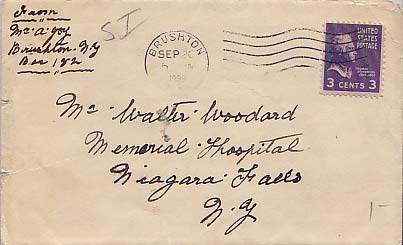 From
Mr A Joy
Brushton. N.Y
Box 182
SI
BRUSHTON
SEP
UNITED
STATES
POSTAGE
3 CENTS 3
Mr Walter Woodard
Memorial Hospital
Niagara Falls
N.Y
1-